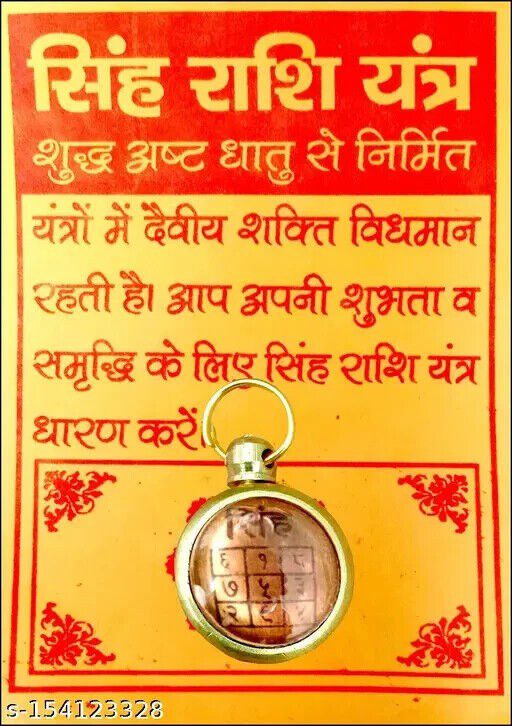 सिंह राशि यंत्र
शुद्ध अष्ट धातु से निर्मित
यंत्रों में दैवीय शक्ति विधमान
रहती है। आप अपनी शुभता व
समृद्धि के लिए सिंह राशि यंत्र
धारण करें।
सिंह
६ १ ८
७ ५ ३
२ ९ ४
s-154123328